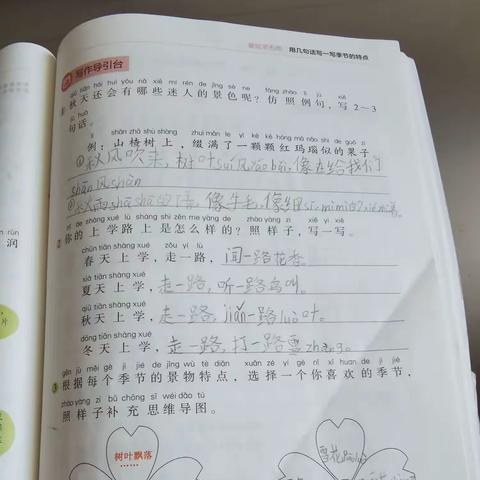 用几句话写一写季节的特点
写作导引台
qiū tiān hái huì yǒu nǎ xiē mí rén de jǐng sè ne fǎng zhào lì jù xiě
① 秋天还会有哪些迷人的景色呢？仿照例句，写2～3
jù huà
句话。
shān zhā shù shàng zhuì mǎn le yì kē kē hóng mǎ nǎo shì de guǒ zi
例：山楂树上，缀满了一颗颗红玛瑙似的果子
①秋风吹来，树叶suí风yáo bǎi，像在给我们
shān风shàn
shā shā的下着，像牛毛，像细
nǐ de shàng xué lù shàng shì zěn me yàng de zhào yàng zi xiě yi xiě
②你的上学路上是怎么样的？照样子，写一写。
chūn tiān shàng xué zǒu yí lù
春天上学，走一路，闻一路花香。
xià tiān shàng xué
夏天上学，走一路，听一路鸟叫。
qiū tiān shàng xué
秋天上学，走一路，jiǎn一路luò叶。
dōng tiān shàng xué
冬天上学，走一路，打一路雪zhàng。
gēn jù měi gè jì jié de jǐng wù tè diǎn xuǎn zé yí gè nǐ xǐ huan de jì jié
③根据每个季节的景物特点，选择一个你喜欢的季节，
zhào yàng zi bǔ chōng sī wéi dǎo tú
照样子补充思维导图。
树叶飘落
……
雪花
润
片